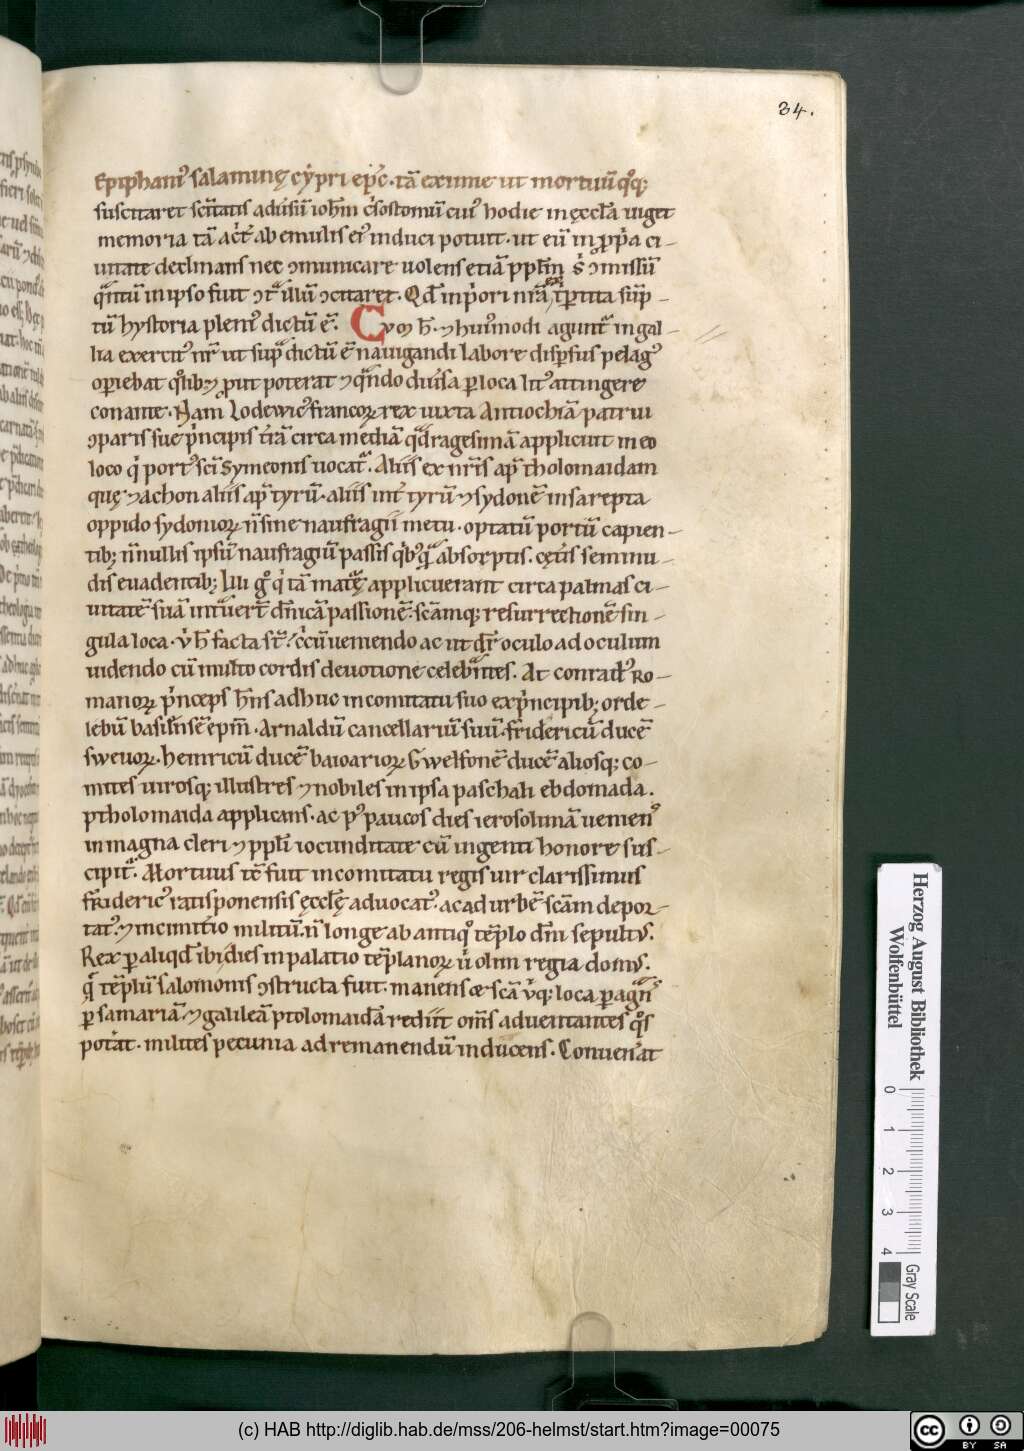 34.
Epiphani᷒ salaminę cẏpri ep̄c. tā eximie ut mortuū q͛q;
suscitaret sc̄itatis adusū ioh̄m c̓sostomū cui᷒ hodie in ęccl̄a uiget
memoria tā act̓ ab emulis ei᷒ induci potuit. ut eū in ꝓp̓a ci-
uitate declinans nec ꝯmunicare uolens etiā ppl̄m s̓ ꝯmissū
q̄ntū in ipso fuit ꝯt̓ illū ꝯcitaret. Qd̄ in p̓ori nr̄a t̓ꝑtita sūp-
tū hystoria pleni᷒ dictū ē. Cvm h̄ ⁊ hui᷒modi agunt᷒ in gal-
lia exercit᷒ nr̄ ut sup̄ dictū ē nauigandi labore disꝑsus pelag᷒
oꝑiebat q͛lib; ꝓut poterat ⁊ q̄ndo diuisa ꝑ loca lit᷒ attingere
conante. Nam Lodewic᷒ francoꝝ rex iuxta Antiochiā patrui
ꝯparis sue p̓ncipis t̓rā circa mediā q̄dragesimā applicuit in eo
loco q̓ port᷒ sc̄i Symeonis uocat᷒. Aliis ex nr̄is ap̄ tholomaidam
quę ⁊ achon aliis ap̄ tyrū. aliis int̓ tyrū ⁊ sydonē in sarepta
oppido sydonioꝝ n̄ sine naufragii metu. optatū portū capien-
tib; n̄nullis ipsū naufragiū passis q̓b᷒q̄ absorptis. cęt̓is seminu-
dis euadentib; Hii g͛ q̓ tā mat̓ę applicuerant circa palmas ci-
uitatē suā int̓uert̄ dn̄icā passionē. sc̄amq; resurrectionē sin-
gula loca. v̓ h̄ facta st̄. c̓cūueniendo ac ut dr̄ oculo ad oculum
uidendo cū multo cordis deuotione celeb̓ntes. At conrad᷒ Ro-
manoꝝ p̓nceps h̄ns adhuc in comitatu suo ex p̓ncipib; orde-
lebū basiliensē ep̄m. Arnaldū cancellariū suū. fridericū ducē
sweuoꝝ. heinricū ducē baioarioꝝ Gwelfonē ducē aliosq; co-
mites uirosq; illustres ⁊ nobiles in ipsa paschali ebdomada.
ptholomaida applicans. ac p᷒ paucos dies ierosolimā ueniens
in magna cleri ⁊ ppl̄i iocunditate cū ingenti honore sus-
cipit᷒. Mortuus tē fuit in comitatu regis uir clarissimus
frideric᷒ ratisponensis ęccl̄ę aduocat᷒. ac ad urbē sc̄am depor-
tat᷒. ⁊ in cimit̓io militū. n̄ longe ab antiq͛ tēplo dn̄i sepultus.
Rex ꝑ aliqd̄ ibi dies in palatio tēplarioꝝ v̓ olim regia domus.
q̄ tēplū salomonis ꝯstructa fuit. manens æ sc̄a v̓q; loca ꝑagrans
ꝑ samariā ⁊ galileā ptolomaidā rediit om̄s aduentantes q͛s
pot̓at. milites pecunia ad remanendū inducens. Conuen̓at
Herzog August Bibliothek
Wolfenbüttel
0 1 2 3 4
Gray Scale
(c) HAB http://diglib.hab.de/mss/206-helmst/start.htm?image=00075
cc BY SA